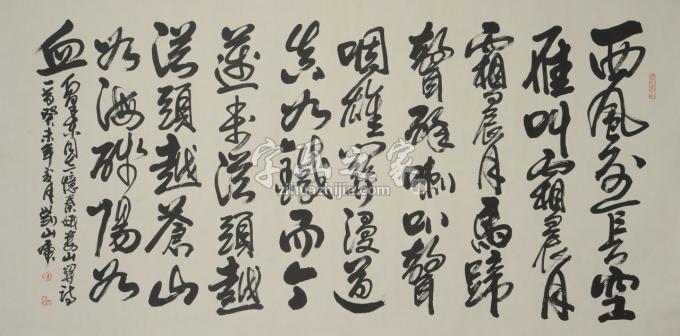 西風烈長空
雁叫霜晨月
霜晨月馬蹄
聲碎喇叭聲
咽雄關漫道
真如鐵而今
邁步從頭越
從頭越蒼山
如海殘陽如
血
憶秦娥婁山關詩
一首癸未年
字画之家
zihuazhijia.com